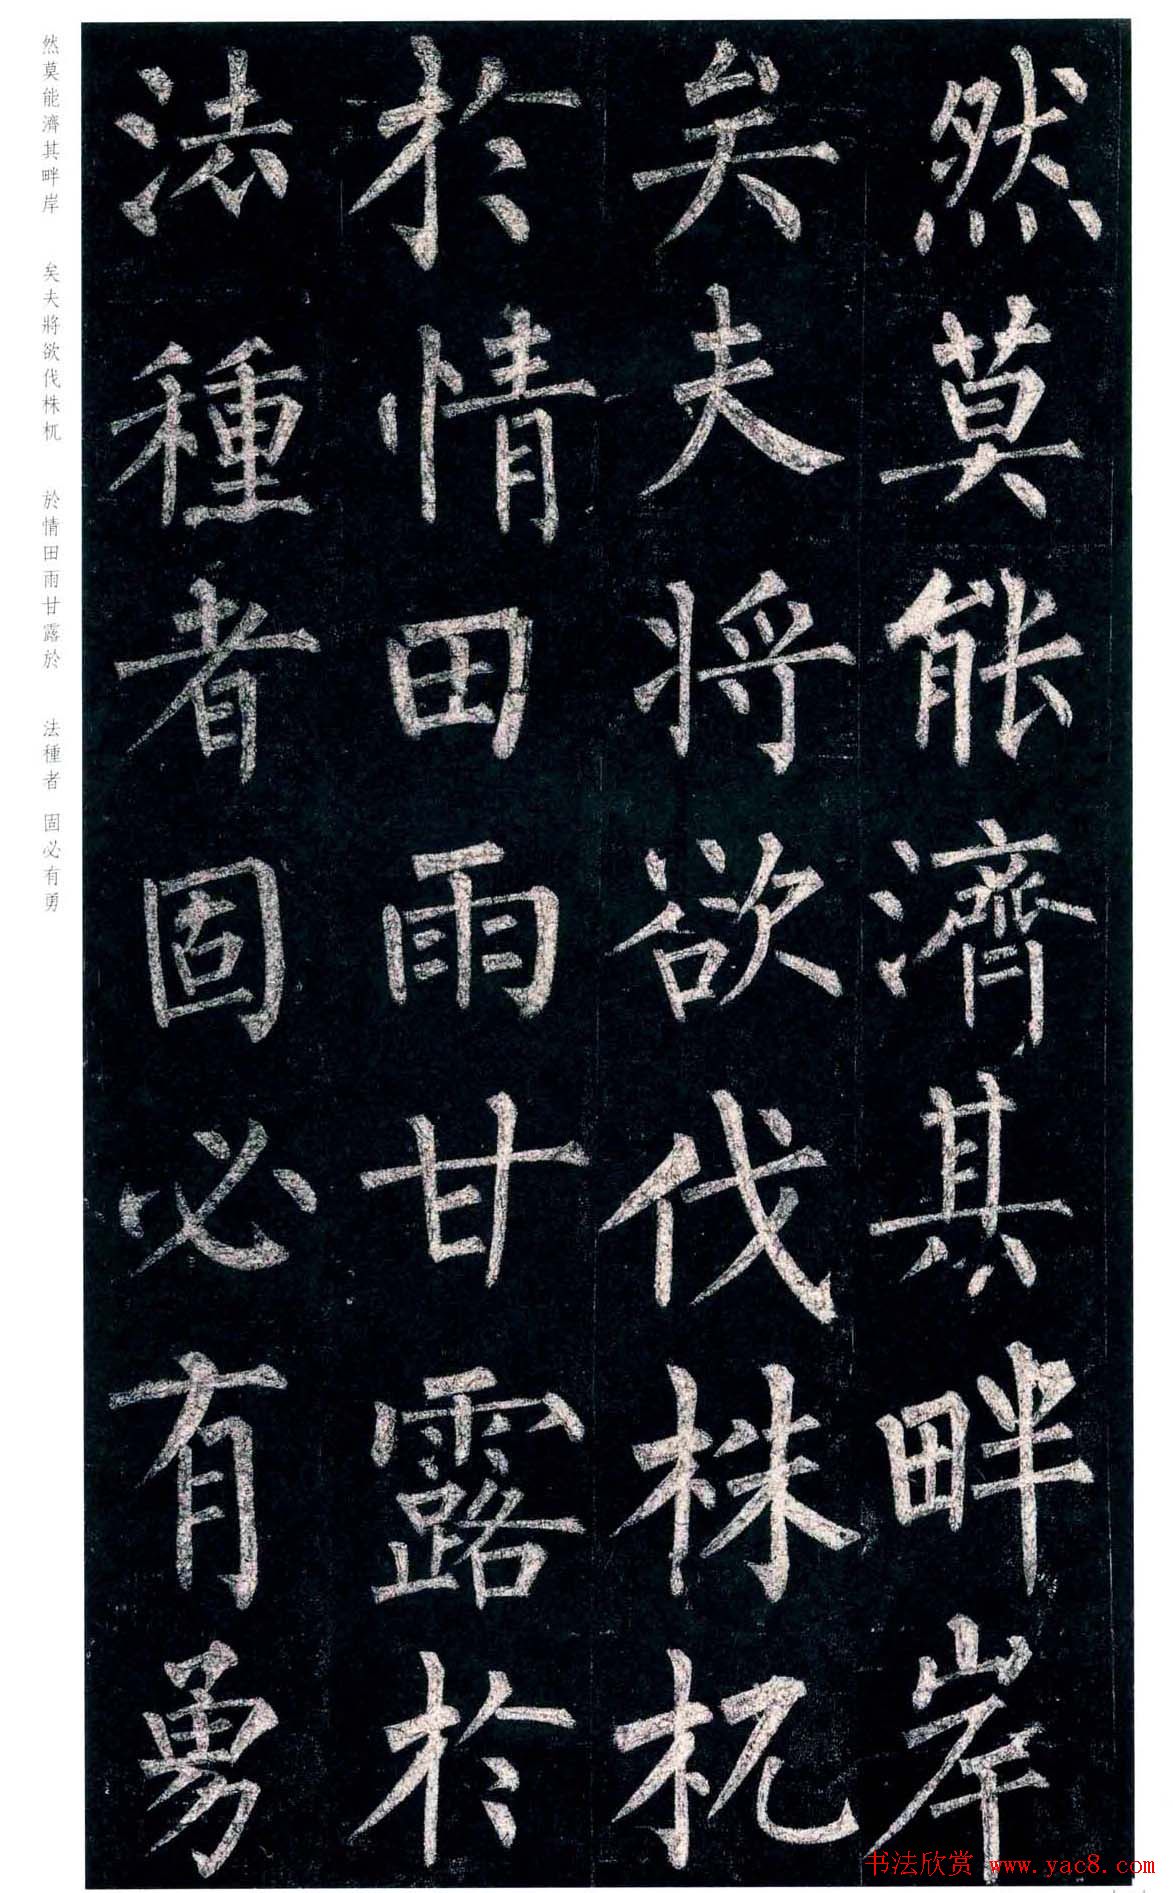 然莫能濟其畔岸
矣夫將欲伐株杌
於情田雨甘露於
法種者固必有勇
然莫能濟其畔岸 矣夫將欲伐株杌 於情田雨甘露於 法種者 固必有勇
书法欣赏 www.yac8.com